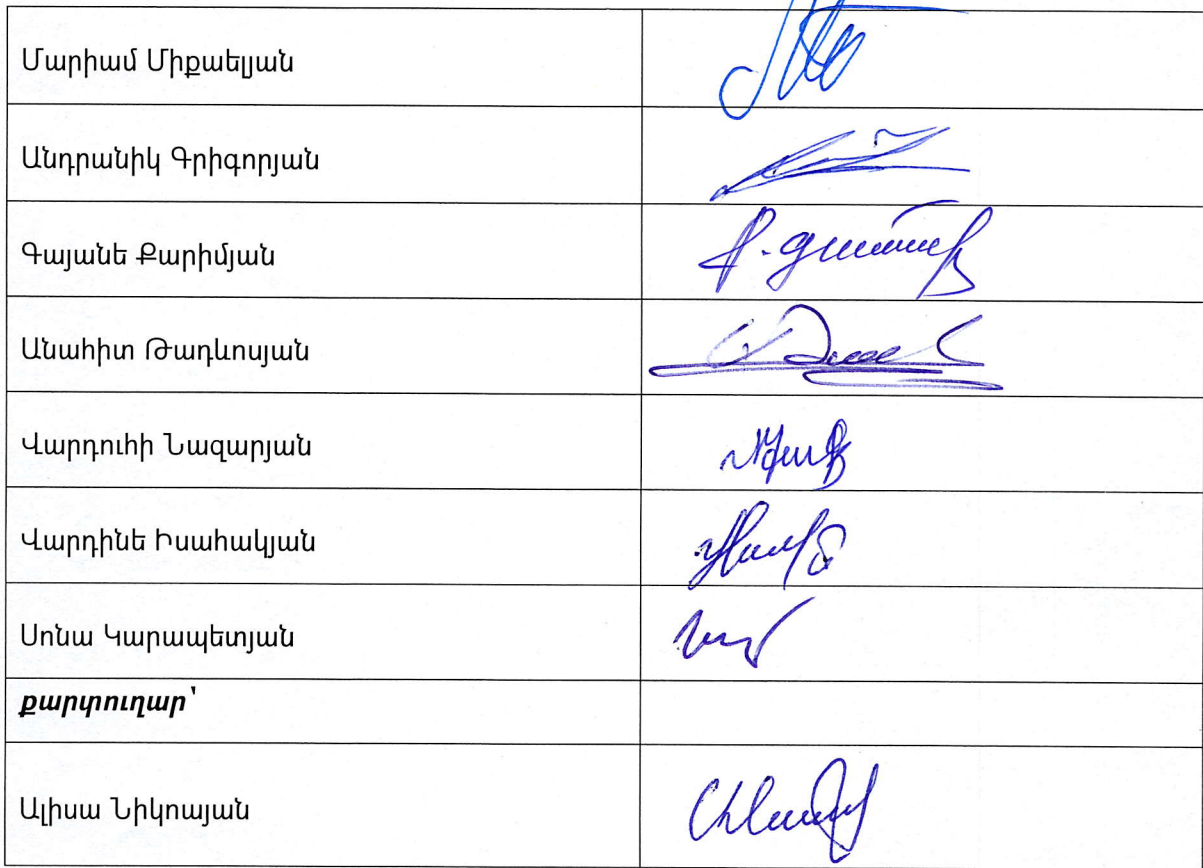 Մարիամ Միքաելյան
Անդրանիկ Գրիգորյան
Գայանե Քարիմյան
Անահիտ Թադևոսյան
Վարդուհի Նազարյան
Վարդինե Իսահակյան
Սոնա Կարապետյան
քարտուղար՝
Ալիսա Նիկոայան